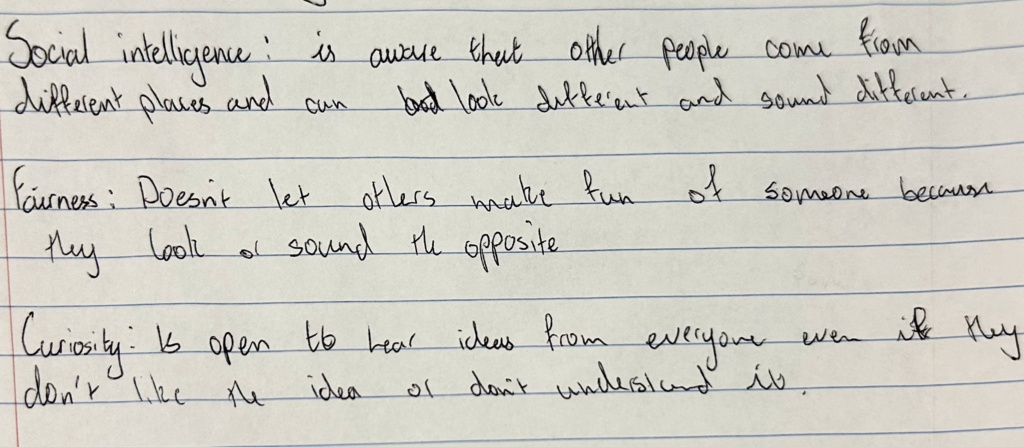 Social intelligence: is aware that other people come from
different places and can look different and sound different.
Fairness: Doesn't let others make fun of someone because
they look or sound the opposite
Curiosity: Is open to hear ideas from everyone even if they
don't like the idea or don't understand it.